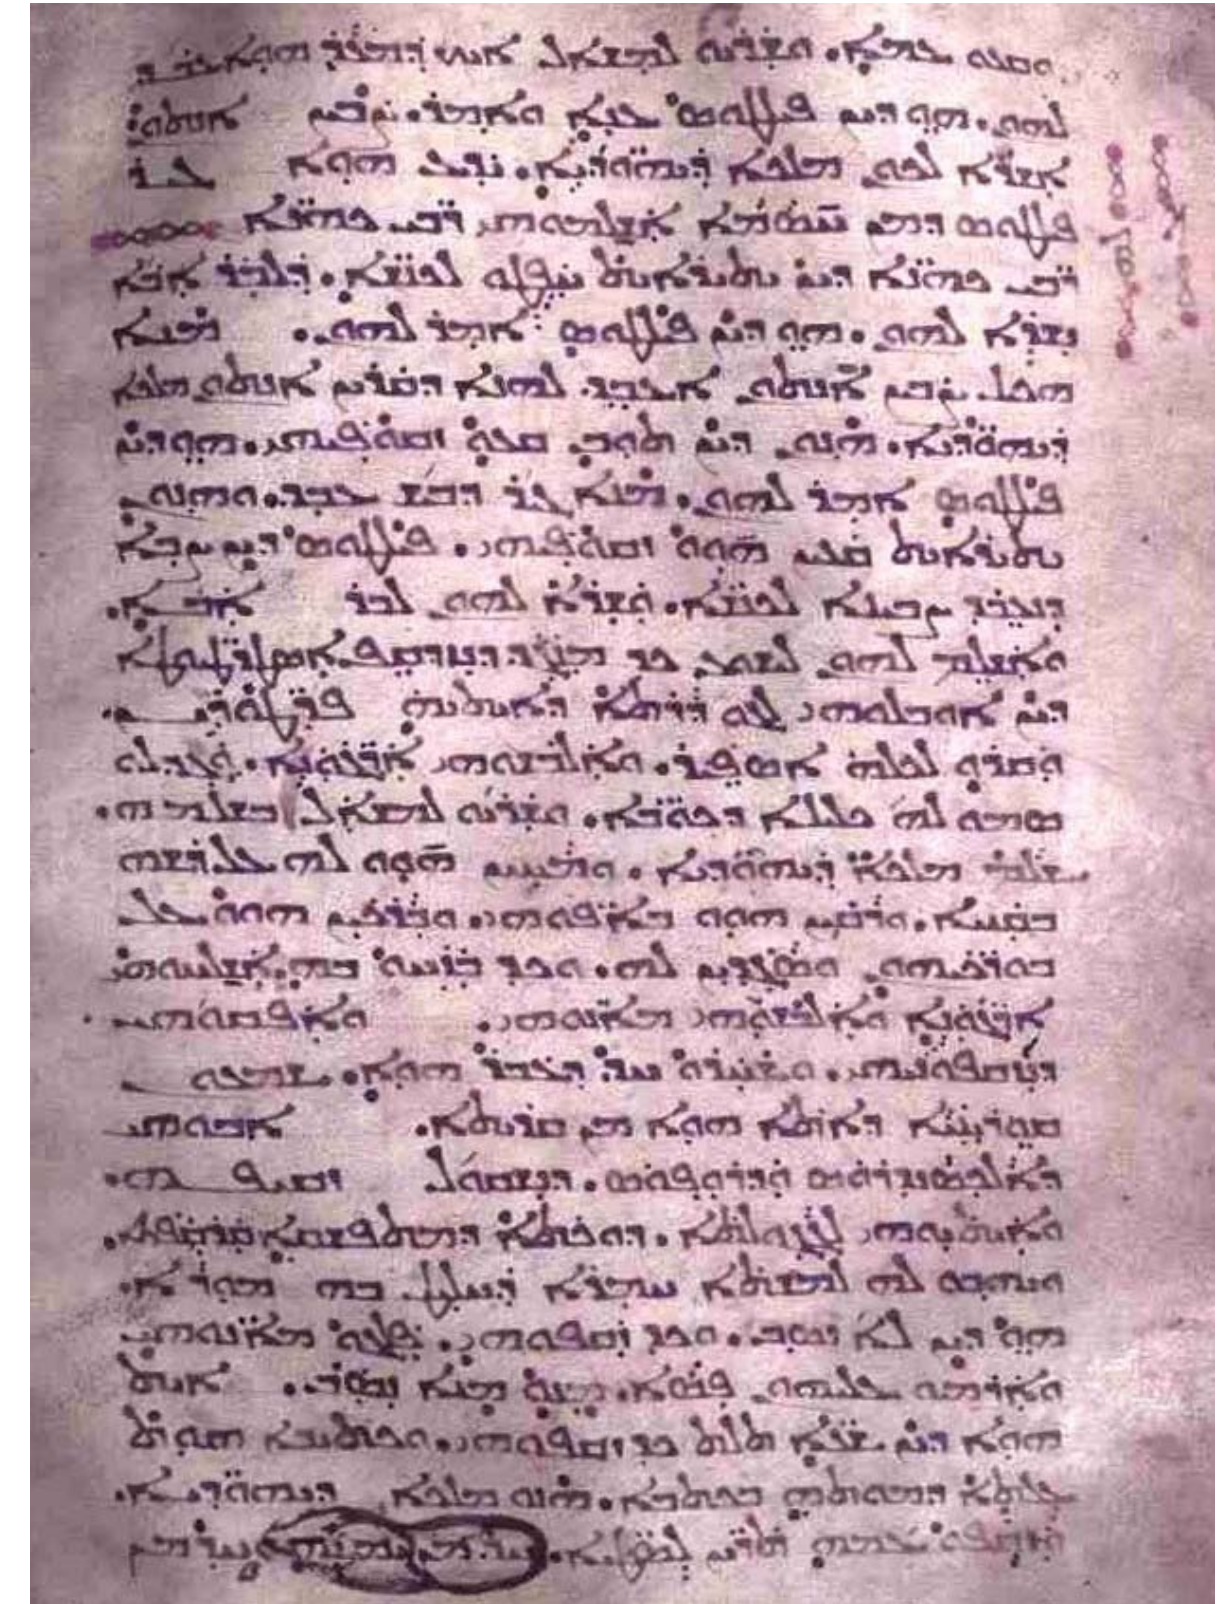 ܘܩܥܘ ܥܡܐ. ܘܫܪܝܘ ܠܡܫܐܠ ܐܝܟ
ܠܗܘܢ. ܗܘ ܕܝܢ ܦܝܠܛܘܣ ܥܢܐ ܘܐܡܪ. ܨܒܝܢ ܐܢܬܘܢ
ܐܫܪܐ ܠܟܘܢ ܡܠܟܐ ܕܝܗܘܕܝܐ. ܝܕܥ ܗܘܐ ܓܝܪ
ܦܝܠܛܘܣ ܕܡܢ ܚܣܡܐ ܐܫܠܡܘܗܝ ܪܒܝ ܟܗܢܐ
ܪܒܝ ܟܗܢܐ ܕܝܢ ܝܬܝܪܐܝܬ ܚܦܛܘ ܠܟܢܫܐ. ܕܠܒܪ ܐܒܐ
ܢܫܪܐ ܠܗܘܢ. ܗܘ ܕܝܢ ܦܝܠܛܘܣ ܐܡܪ ܠܗܘܢ. ܡܢܐ
ܗܟܝܠ ܨܒܝܢ ܐܢܬܘܢ ܐܥܒܕ ܠܗܢܐ ܕܩܪܝܢ ܐܢܬܘܢ ܡܠܟܐ
ܕܝܗܘܕܝܐ. ܗܢܘܢ ܕܝܢ ܬܘܒ ܩܥܘ ܙܩܘܦܝܗܝ. ܗܘ ܕܝܢ
ܦܝܠܛܘܣ ܐܡܪ ܠܗܘܢ. ܡܢܐ ܓܝܪ ܕܒܝܫ ܥܒܕ. ܘܗܢܘܢ
ܝܬܝܪܐܝܬ ܩܥܝܢ ܗܘܘ ܙܩܘܦܝܗܝ. ܦܝܠܛܘܣ ܕܝܢ ܨܒܐ
ܕܢܥܒܕ ܨܒܝܢܐ ܠܟܢܫܐ. ܘܫܪܐ ܠܗܘܢ ܠܒܪ ܐܒܐ.
ܘܐܫܠܡ ܠܗܘܢ ܠܝܫܘܥ ܟܕ ܡܢܓܕ ܕܢܙܕܩܦ. ܐܣܛܪܛܝܘܛܐ
ܕܝܢ ܐܘܒܠܘܗܝ ܠܓܘ ܕܪܬܐ ܕܐܝܬܝܗ ܦܪܛܘܪܝܢ.
ܘܩܪܘ ܠܟܠܗ ܐܣܦܝܪ. ܘܐܠܒܫܘܗܝ ܐܪܓܘܢܐ. ܘܓܕܠܘ
ܣܡܘ ܠܗ ܟܠܝܠܐ ܕܟܘܒܐ. ܘܫܪܝܘ ܠܡܫܐܠ ܒܫܠܡܗ.
ܫܠܡ ܡܠܟܐ ܕܝܗܘܕܝܐ. ܘܡܚܝܢ ܗܘܘ ܠܗ ܥܠ ܪܫܗ
ܒܩܢܝܐ. ܘܪܩܝܢ ܗܘܘ ܒܐܦܘܗܝ. ܘܒܪܟܝܢ ܗܘܘ ܥܠ
ܒܘܪܟܝܗܘܢ ܘܣܓܕܝܢ ܠܗ. ܘܟܕ ܒܙܚܘ ܒܗ. ܐܫܠܚܘܗܝ
ܐܪܓܘܢܐ ܘܐܠܒܫܘܗܝ ܡܐܢܘܗܝ. ܘܐܦܩܘܗܝ
ܕܢܙܩܦܘܢܝܗܝ. ܘܫܚܪܘ ܚܕ ܕܥܒܪ ܗܘܐ. ܫܡܥܘܢ
ܩܘܪܝܢܝܐ ܕܐܬܐ ܗܘܐ ܡܢ ܩܪܝܬܐ. ܐܒܘܗܝ
ܕܐܠܟܣܢܕܪܘܣ ܘܕܪܘܦܘܣ. ܕܢܫܩܘܠ ܙܩܝܦܗ.
ܘܐܝܬܝܘܗܝ ܠܓܓܘܠܬܐ. ܕܘܟܬܐ ܕܡܬܦܫܩܐ ܩܪܩܦܬܐ.
ܘܝܗܒܘ ܠܗ ܠܡܫܬܐ ܚܡܪܐ ܕܚܠܝܛ ܒܗ ܡܘܪܐ.
ܗܘ ܕܝܢ ܠܐ ܢܣܒ. ܘܟܕ ܙܩܦܘܗܝ. ܦܠܓܘ ܡܐܢܘܗܝ
ܘܐܪܡܝܘ ܥܠܝܗܘܢ ܦܣܐ. ܡܢܘ ܡܢܐ ܢܣܒ. ܐܝܬ
ܗܘܐ ܕܝܢ ܫܥܐ ܬܠܬ ܟܕ ܙܩܦܘܗܝ. ܘܟܬܝܒܐ ܗܘܬ
ܥܠܬܐ ܕܡܘܬܗ ܒܟܬܒܐ. ܗܢܘ ܡܠܟܐ ܕܝܗܘܕܝܐ.
ܥܡܗ ܬܪܝܢ ܠܣܛܝܐ. ܚܕ ܡܢ ܝܡܝܢܗ ܘܚܕ ܡܢ